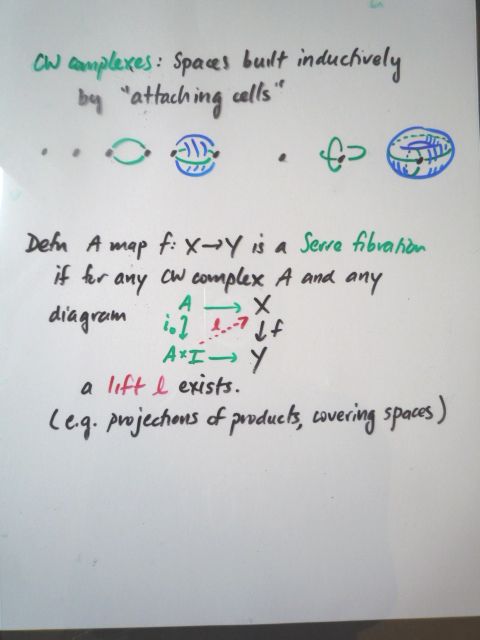 CW complexes: Spaces built inductively
by "attaching cells"
Defn A map f: X→Y is a Serre fibration
if for any CW complex A and any
diagram
A → X
i₀ l ↓ f
A×I → Y
a lift l exists.
(e.g. projections of products, covering spaces)